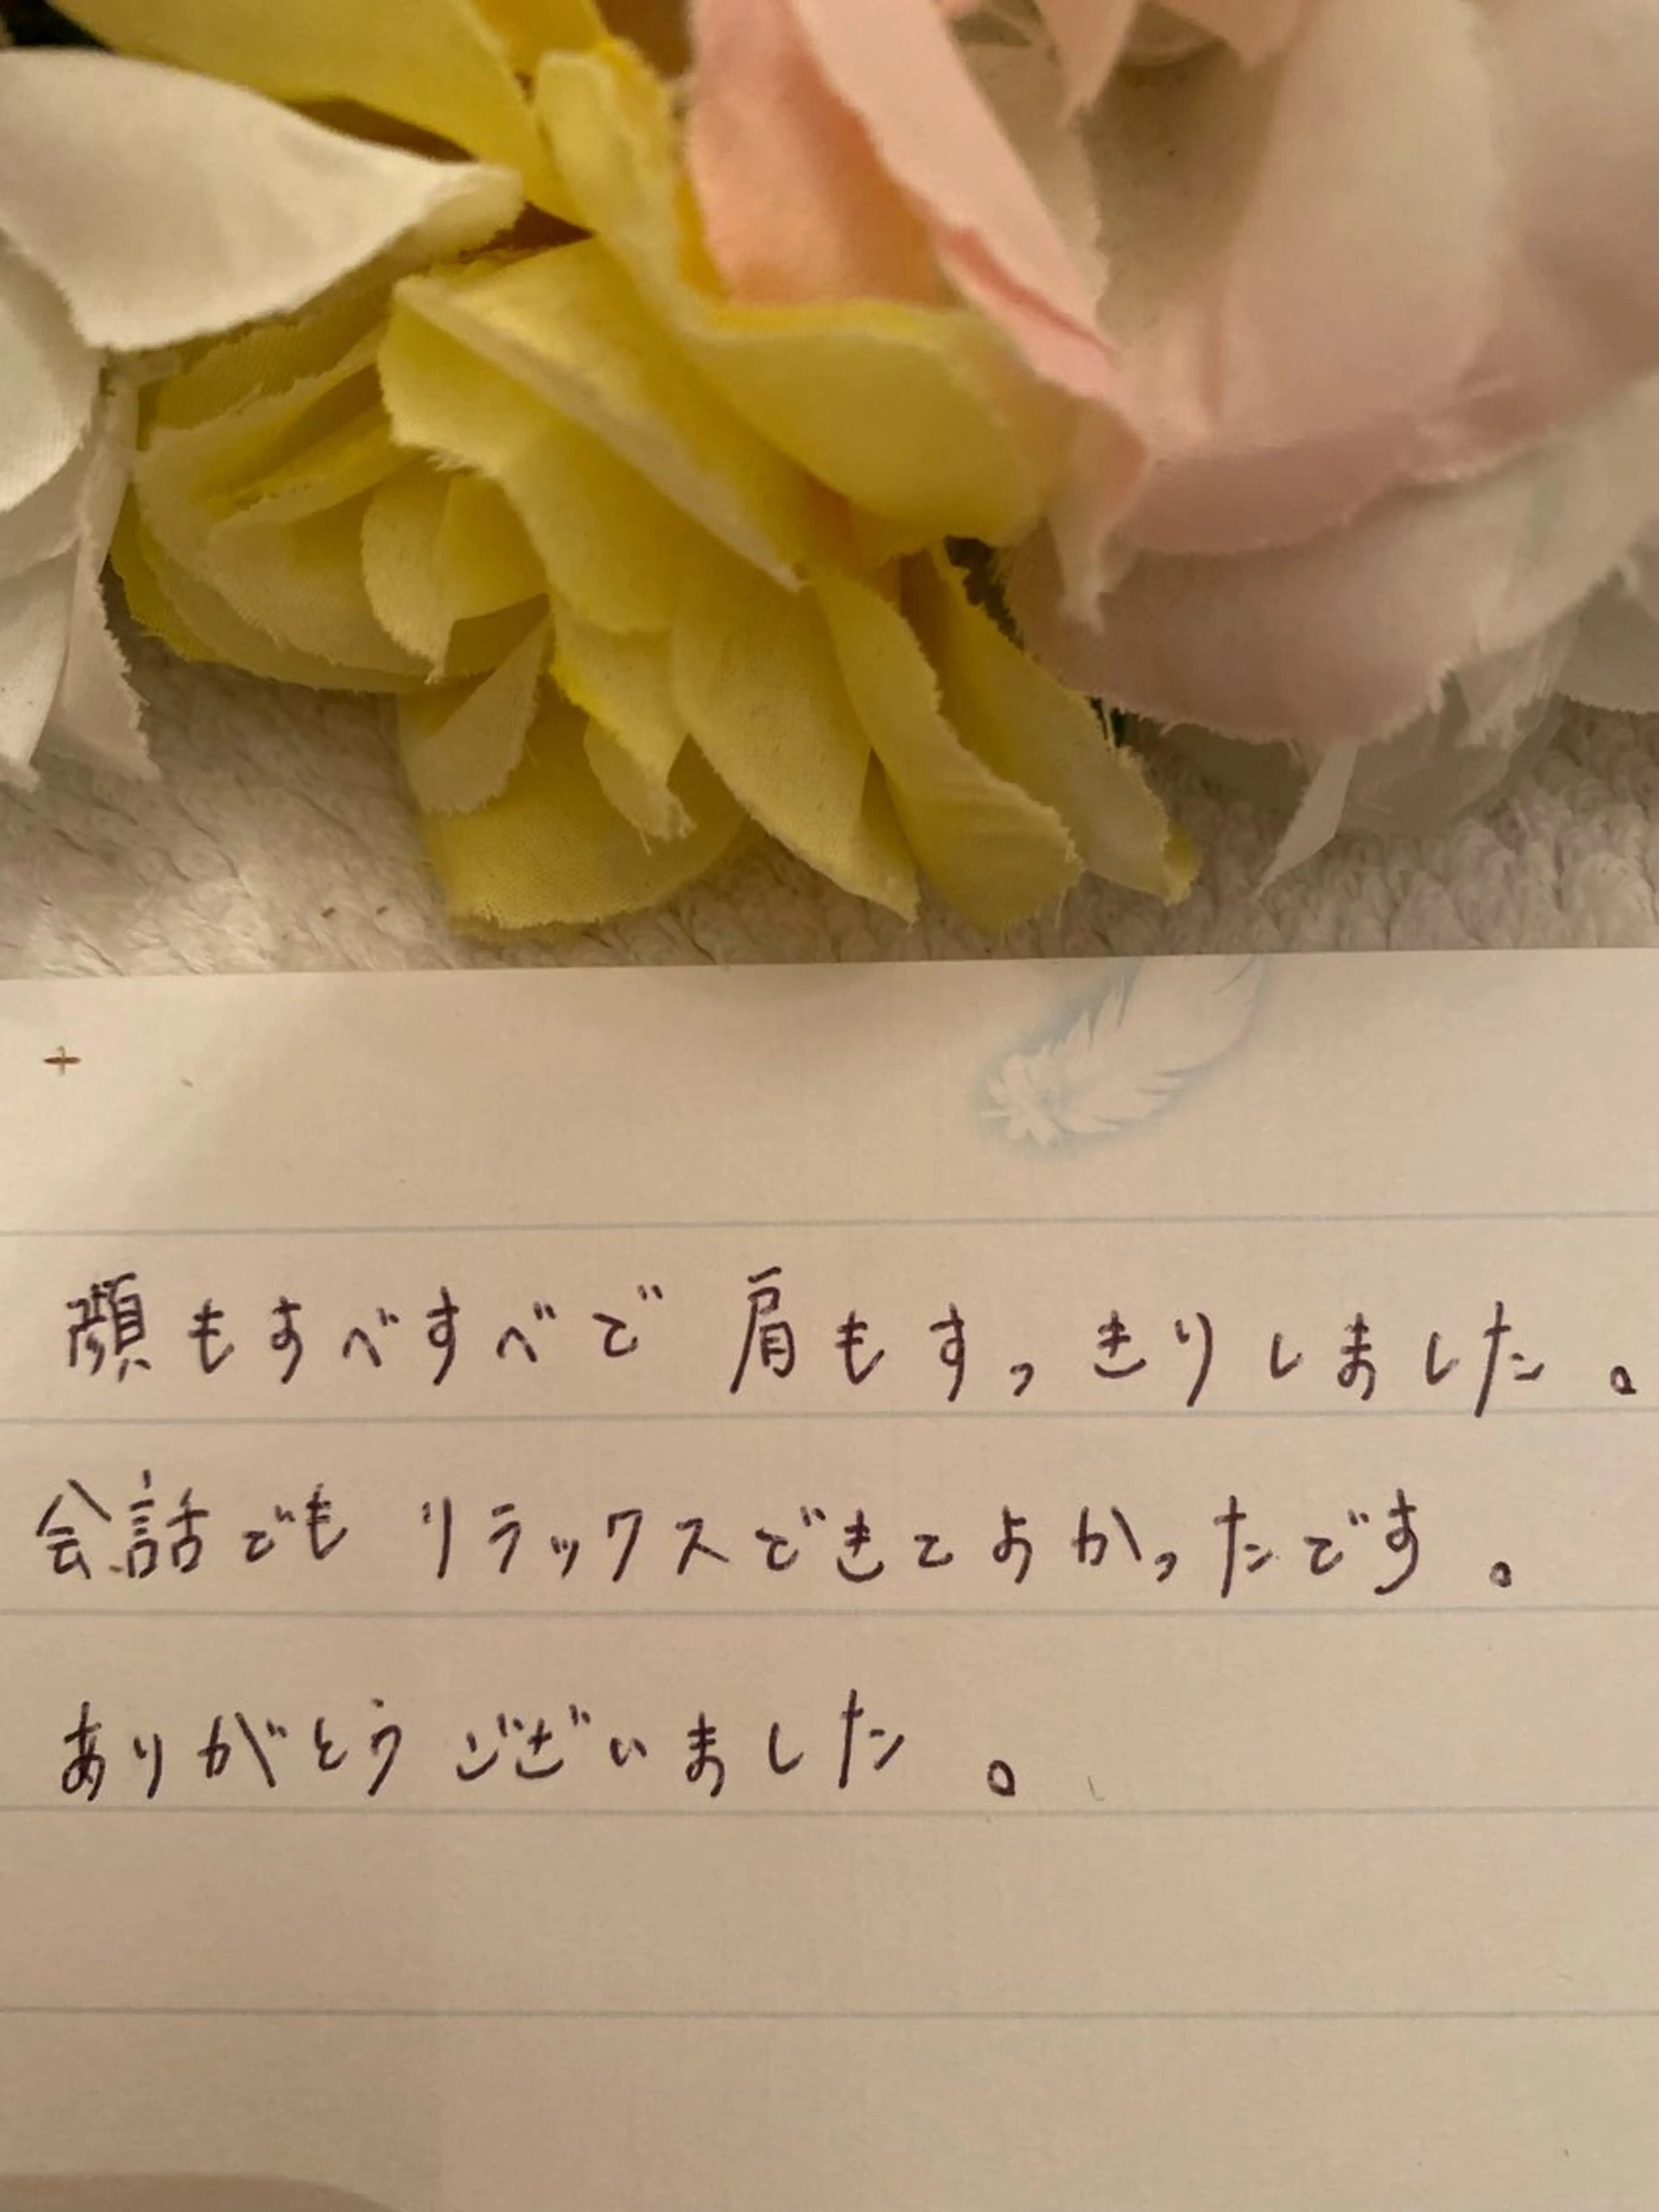 顔もすべすべで 肩もすっきりしました。
会話でも リラックスできてよかったです。
ありがとうございました。